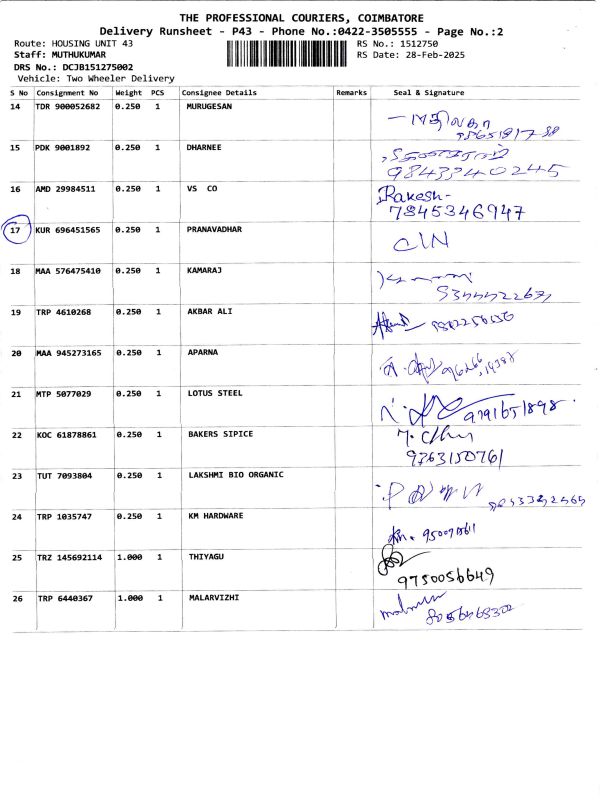 THE PROFESSIONAL COURIERS, COIMBATORE
Delivery Runsheet - P43 - Phone No.:0422-3505555 - Page No.:2
Route: HOUSING UNIT 43 RS No.: 1512750
Staff: MUTHUKUMAR RS Date: 28-Feb-2025
DRS No.: DCJB151275002
Vehicle: Two Wheeler Delivery
S No Consignment No Weight PCS Consignee Details Remarks Seal & Signature
14 TDR 900052682 0.250 1 MURUGESAN
15 PDK 9001892 0.250 1 DHARNEE
9843340245
16 AMD 29984511 0.250 1 VS CO Rakesh-
7845346947
17 KUR 696451565 0.250 1 PRANAVADHAR
18 MAA 576475410 0.250 1 KAMARAJ
19 TRP 4610268 0.250 1 AKBAR ALI
20 MAA 945273165 0.250 1 APARNA
21 MTP 5077029 0.250 1 LOTUS STEEL 9791651898
22 KOC 61878861 0.250 1 BAKERS SIPICE
9363150761
23 TUT 7093804 0.250 1 LAKSHMI BIO ORGANIC
24 TRP 1035747 0.250 1 KM HARDWARE
25 TRZ 145692114 1.000 1 THIYAGU
9750056649
26 TRP 6440367 1.000 1 MALARVIZHI